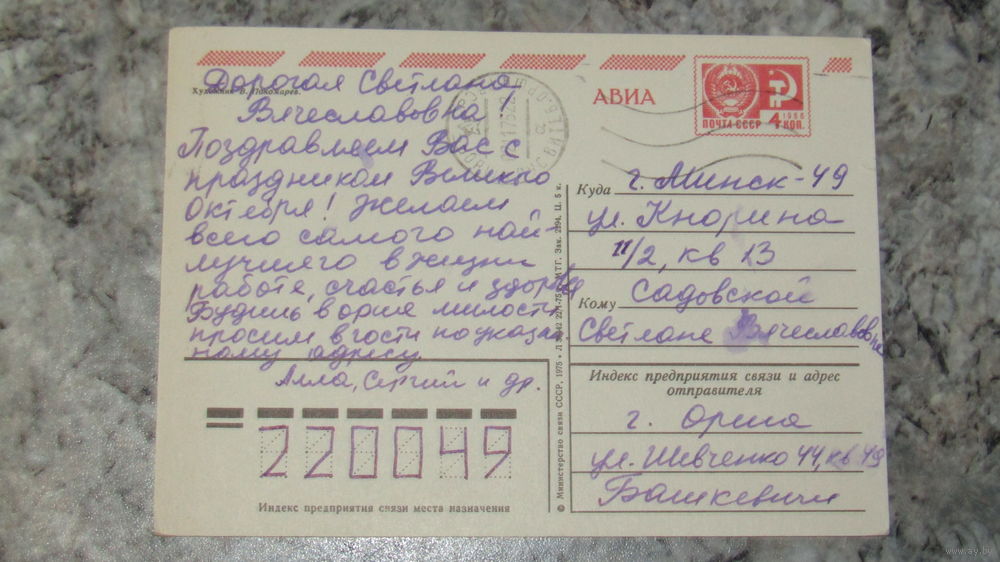 Художник В. Пономарев.
Дорогая Светлана
Вячеславовна
Поздравляем Вас с
праздником Великого
Октября! Желаем
всего самого най-
лучшего в жизни
работе, счастья и
Будишь в орше милости
просим в гости по указан
ному адресу
Алла, Сергий и др.
АВИА
ПОЧТА СССР 4 КОП.
1966
Куда г. Минск-49
ул. Кнорина
11/2, кв 13
Кому Садовской
Светлане Вячеславовне
Индекс предприятия связи и адрес
отправителя
г. Орша
ул. Шевченко 44, кв 49
Башкевичи
220049
Индекс предприятия связи места назначения
© Министерство связи СССР, 1975 •
Ц. 5 к.
www.ay.by